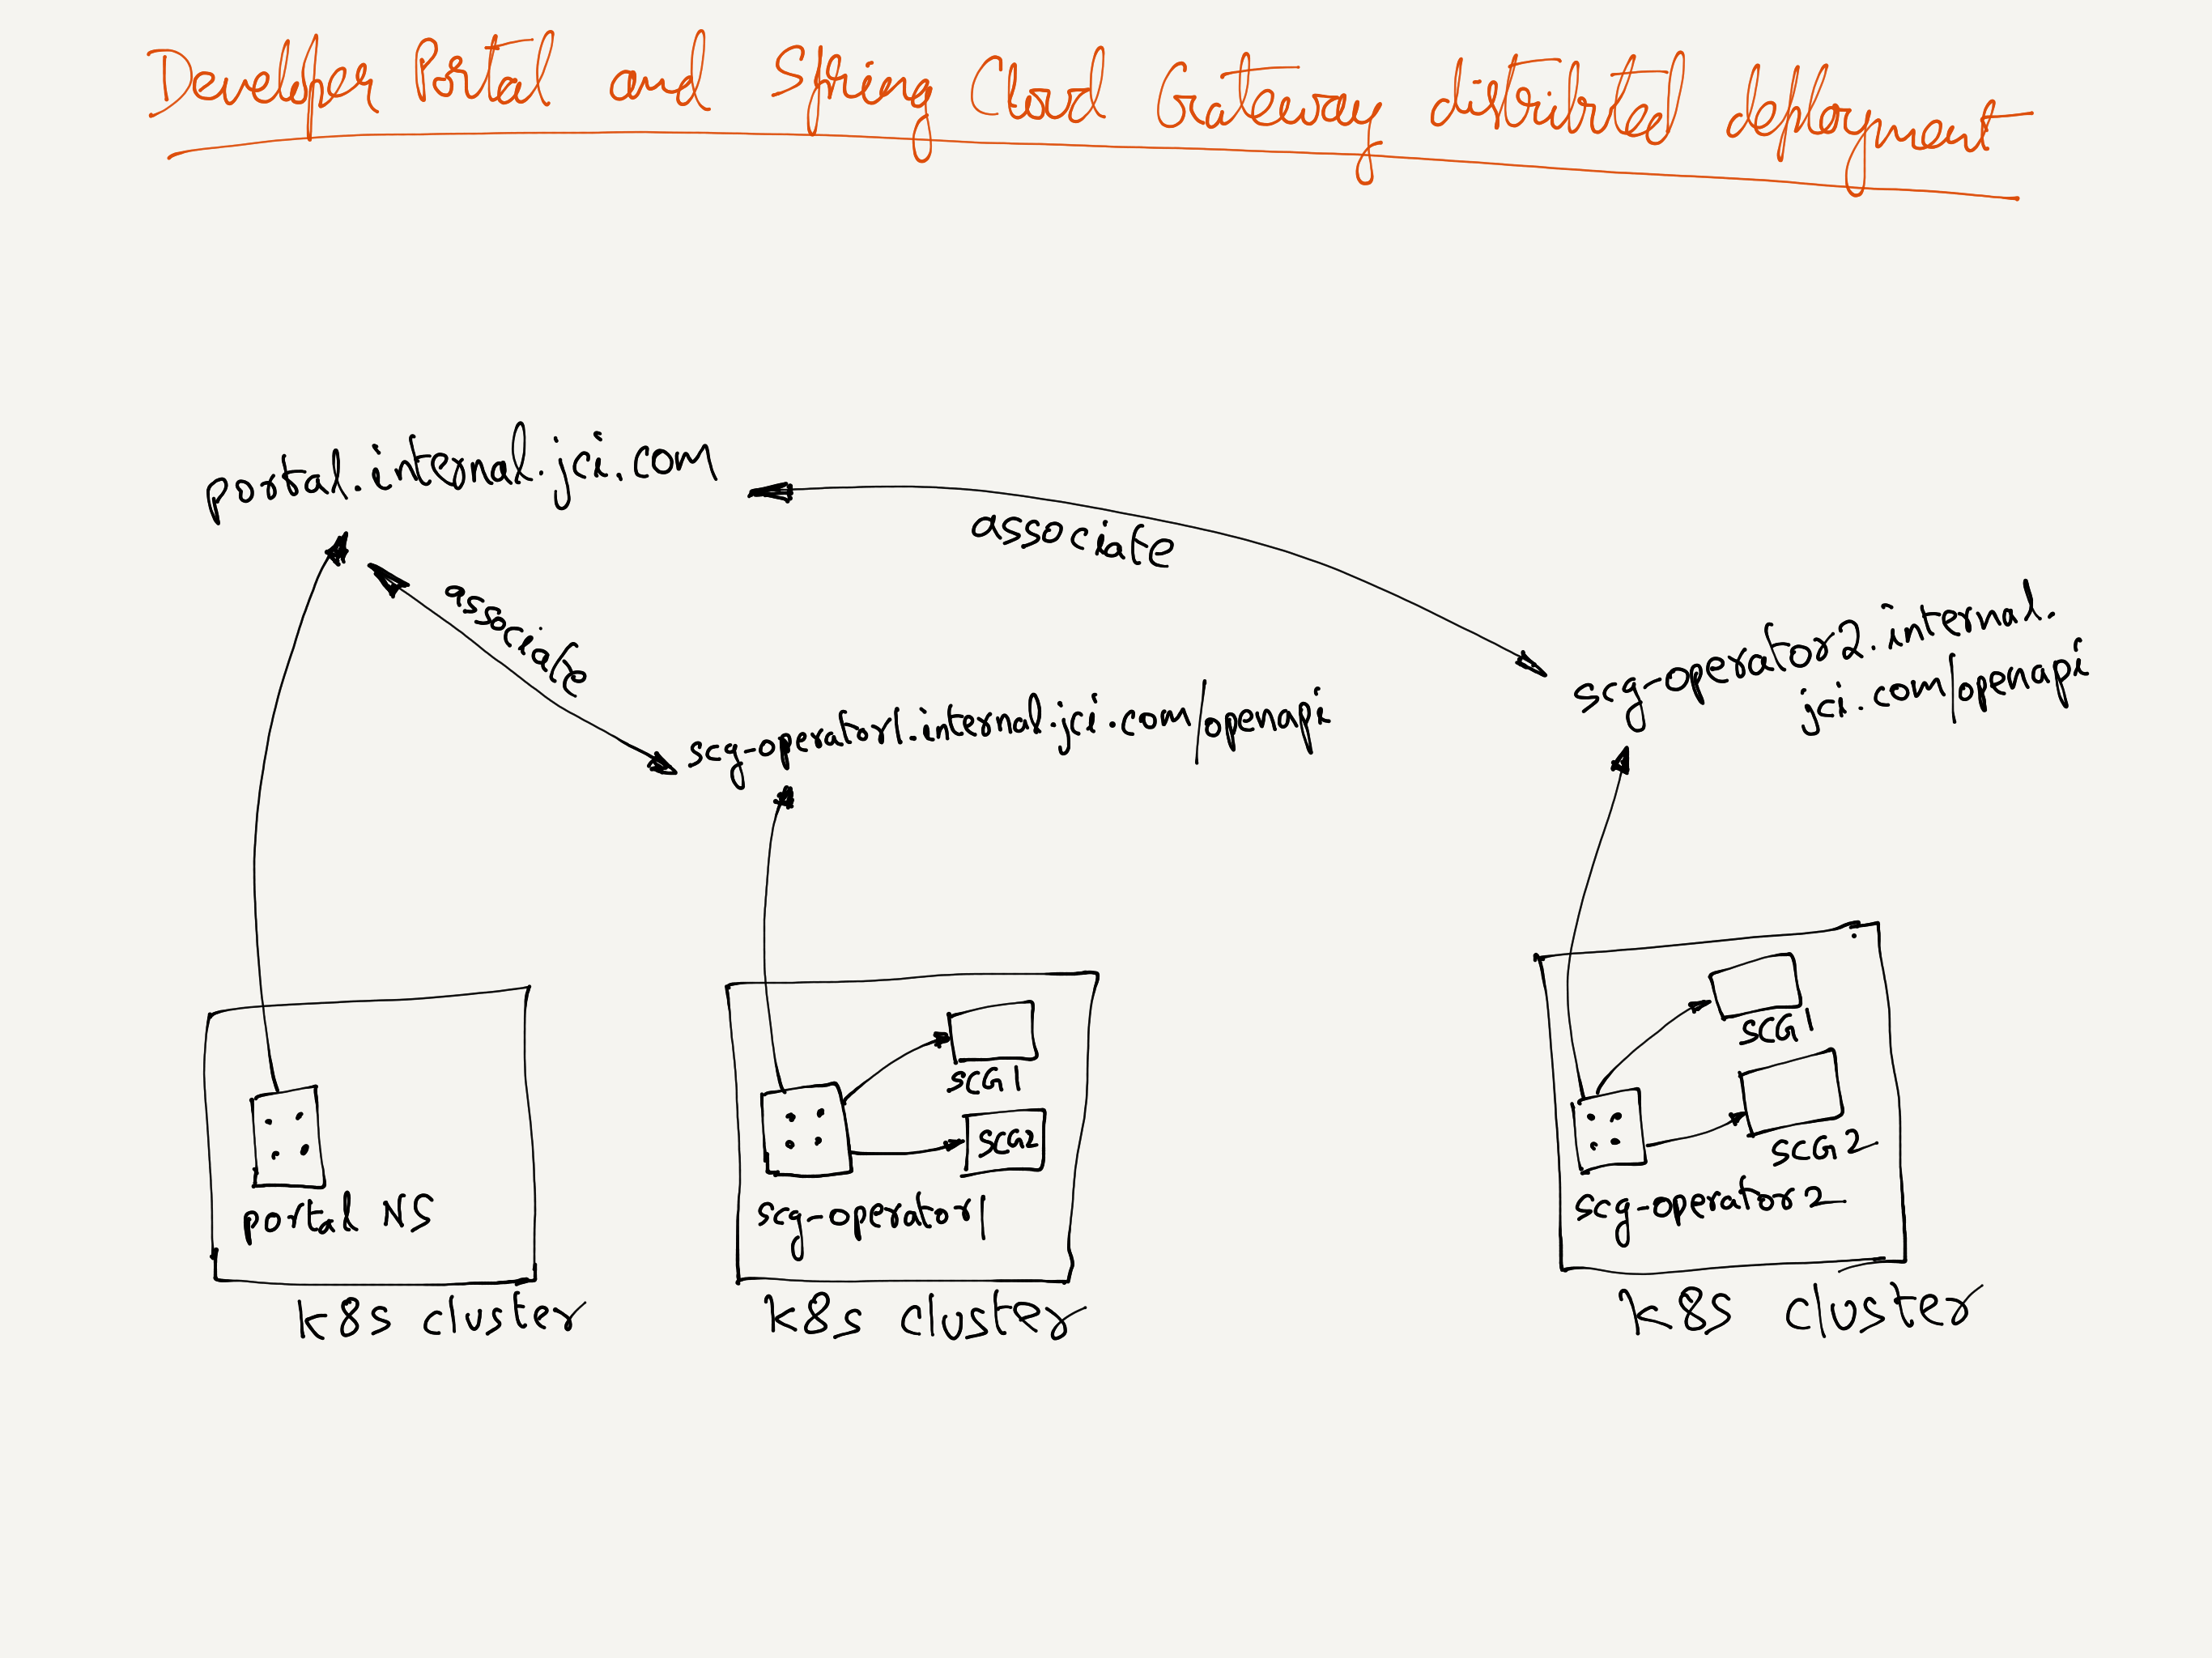 Developer Portal and Spring Cloud Gateway distributed deployment
portal.internal.jci.com
associate
associate
scg-operator2.internal.
jci.com/openapi
scg-operator1.internal.jci.com/openapi
SCG1
SCG2
scg-operator1
portal NS
SCG1
SCG2
scg-operator2
K8s cluster
K8s cluster
K8s cluster